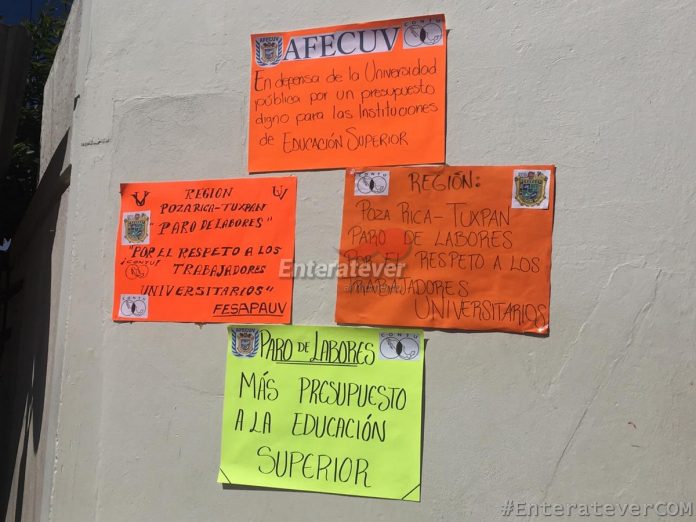 AFECUV
CONTU
En defensa de la Universidad
pública por un presupuesto
digno para las Instituciones
de EDUCACIÓN SUPERIOR
REGION
POZA RICA-TUXPAN
"PARO DE LABORES"
"POR EL RESPETO A LOS
¡CONTU!
TRABAJADORES
UNIVERSITARIOS"
FESAPAUV
CONTU
CONTU
REGIÓN:
POZA RICA-TUXPAN
PARO DE LABORES
POR EL RESPETO A LOS
TRABAJADORES
UNIVERSITARIOS
Enteratever
AFECUV
PARO DE LABORES
CONTU
MÁS PRESUPUESTO
A LA EDUCACIÓN
SUPERIOR
#EnterateverCOM